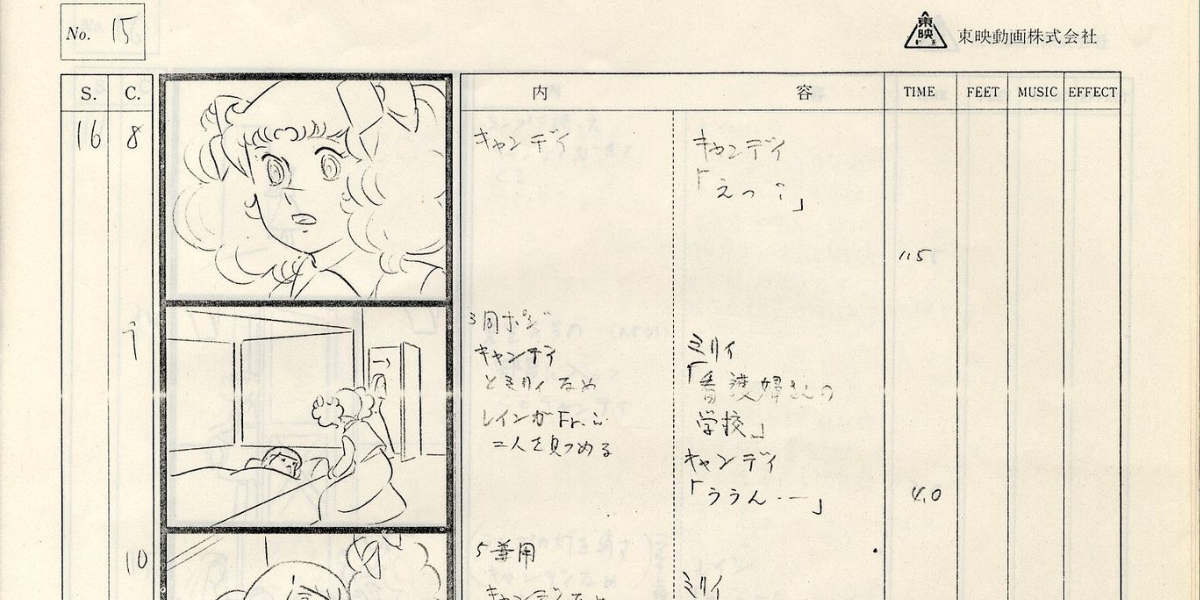 No. 15
東映
東映動画株式会社
S. C. 内容 TIME FEET MUSIC EFFECT
16 8
キャンディ
キャンディ
「えっ?」
1.5
9
3同ポジ
キャンディ
とミリィなめ
レインがFr. in
二人を見つめる
ミリィ
「看護婦さんの
学校」
キャンディ
「ううん・—」
4.0
10
5兼用
キャンディなめ
ミリィ